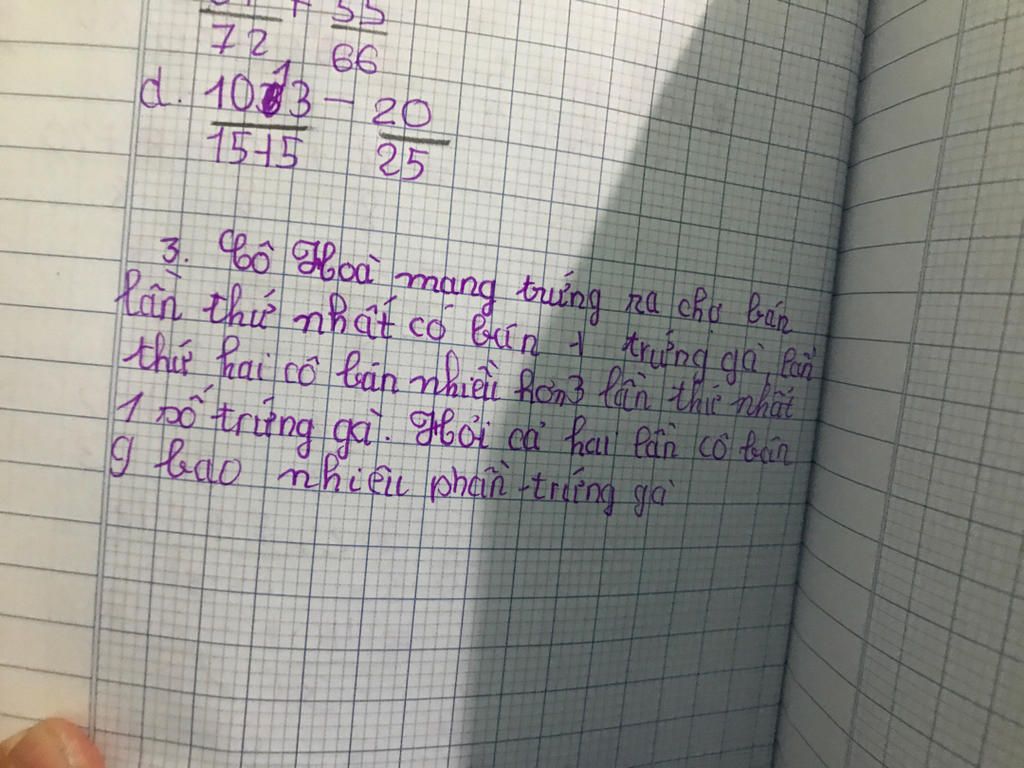 72 66
d. 1013 - 20
15 15 25
3. Cô Hoà mang trứng ra chợ bán
lần thứ nhất cô bán 1 trứng gà, lần
thứ hai cô bán nhiều hơn 3 lần thứ nhất
1 số trứng gà. Hỏi cả hai lần cô bán
9 bao nhiêu phần trứng gà